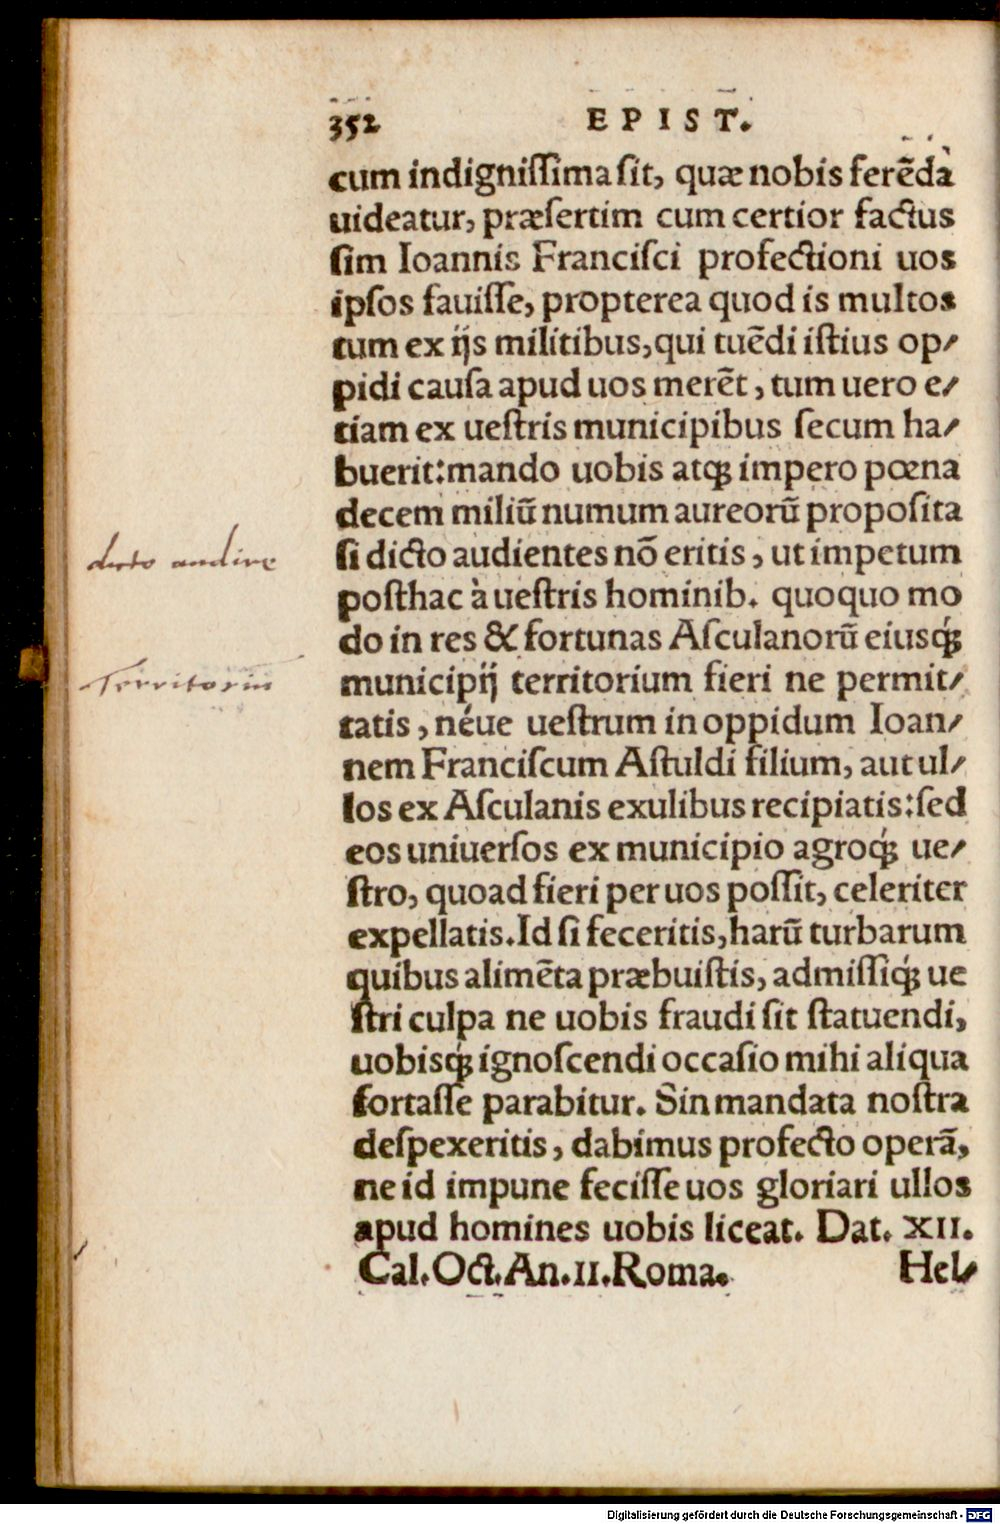 352 EPIST.
cum indigniſſima ſit, quæ nobis ferẽda
uideatur, præſertim cum certior factus
ſim Ioannis Franciſci profectioni uos
ipſos fauiſſe, propterea quod is multos
tum ex ijs militibus, qui tuẽdi iſtius op⸗
pidi cauſa apud uos merẽt, tum uero e⸗
tiam ex ueſtris municipibus ſecum ha⸗
buerit: mando uobis atq; impero pœna
decem miliũ numum aureorũ propoſita
ſi dicto audientes nõ eritis, ut impetum
dicto audire
poſthac à ueſtris hominib. quoquo mo
do in res & fortunas Aſculanorũ eiusq́;
municipij territorium fieri ne permit⸗
Territoriũ
tatis, néue ueſtrum in oppidum Ioan⸗
nem Franciſcum Aſtuldi filium, aut ul⸗
los ex Aſculanis exulibus recipiatis: ſed
eos uniuerſos ex municipio agroq́; ue⸗
ſtro, quoad fieri per uos poſſit, celeriter
expellatis. Id ſi feceritis, harũ turbarum
quibus alimẽta præbuiſtis, admiſſiq́; ue
ſtri culpa ne uobis fraudi ſit ſtatuendi,
uobisq́; ignoſcendi occaſio mihi aliqua
fortaſſe parabitur. Sin mandata noſtra
deſpexeritis, dabimus profecto operã,
ne id impune feciſſe uos gloriari ullos
apud homines uobis liceat. Dat. XII.
Cal. Oct. An. II. Roma. Hel⸗
Digitalisierung gefördert durch die Deutsche Forschungsgemeinschaft - DFG